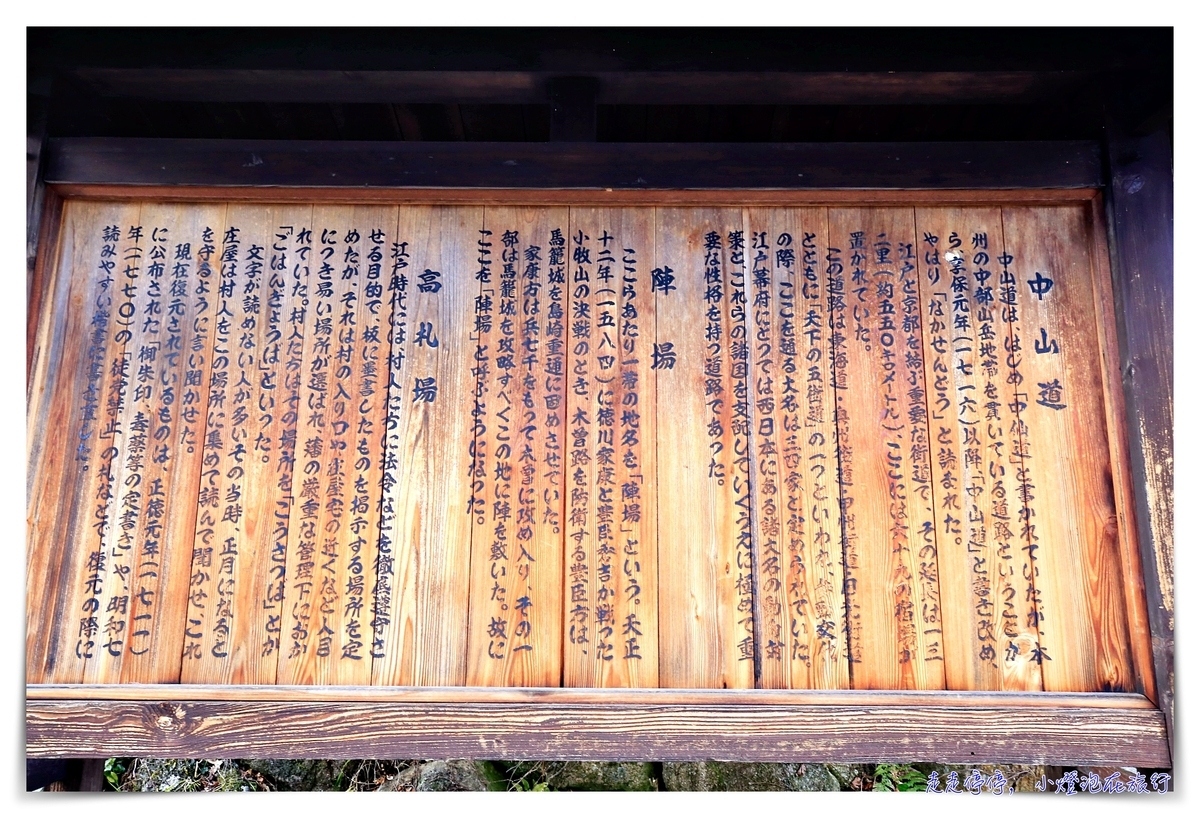 中山道
中山道は、はじめ「中仙道」と書かれていたが、本
州の中部山岳地帯を貫いている道路ということか
ら享保元年(一七一六)以降「中山道」と書き改め、
やはり「なかせんどう」と読まれた。
江戸と京都を結ぶ重要な街道で、その延長は一三
二里(約五五〇キロメートル)、ここには六十九の宿場が
置かれていた。
この道路は東海道・奥州街道・甲州街道・日光街道
とともに「天下の五街道」の一つといわれ、参勤交代
の際、ここを通る大名は三四家と定められていた。
江戸幕府にとっては西日本にある諸大名の動向に対
策とこれらの諸国を支配していくうえに極めて重
要な性格を持つ道路であった。
陣場
ここらあたり一帯の地名を「陣場」という。天正
十二年(一五八四)に徳川家康と豊臣秀吉が戦った
小牧山の決戦のとき、木曽路を防衛する豊臣方は、
馬籠城を島崎重通に固めさせていた。
家康方は兵七千をもって木曽に攻め入り、その一
部は馬籠城を攻略すべくこの地に陣を敷いた。故に
ここを「陣場」と呼ぶようになった。
高札場
江戸時代には村人たちに法令などを徹底遵守さ
せる目的で、板に墨書したものを掲示する場所を定
めたが、それは村の入り口や、庄屋宅の近くなど人目
につき易い場所が選ばれ、藩の厳重な管理下におか
れていた。村人たちはその場所を「こうさつば」とか
「ごはんぎょうば」といった。
文字が読めない人が多いその当時、正月になると
庄屋は村人をこの場所に集めて読んで聞かせ、これ
を守るように言い聞かせた。
現在復元されているものは、正徳元年(一七一一)
に公布された「御朱印、毒薬等の定書き」や、明和七
年(一七七〇)の「徒党禁止」の札などで、復元の際に
読みやすい楷書に書き直した。
走走停停，小燈泡在旅行